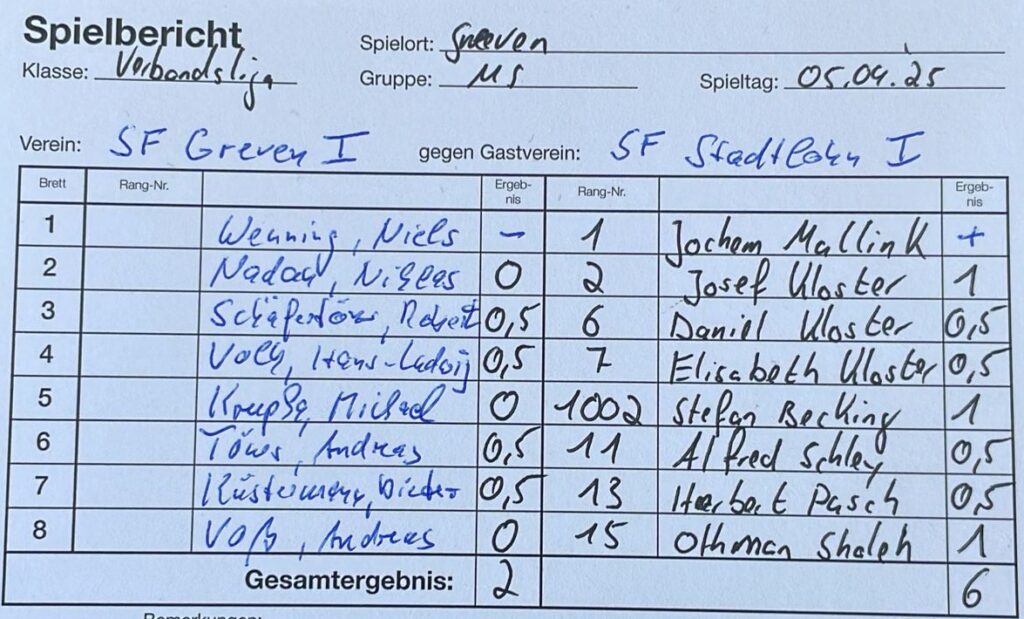 Spielbericht
Spielort: Greven
Klasse: Verbandsliga Gruppe: MS Spieltag: 05.04.25
Verein: SF Greven I gegen Gastverein: SF Stadtlohn I
Brett Rang-Nr. Ergeb-nis Rang-Nr. Ergeb-nis
1 Wenning, Niels - 1 Jochem Mallink +
2 0 2 Josef Kloster 1
3 Robert 0,5 6 Daniel Kloster 0,5
4 Hans-Ludwig 0,5 7 Elisabeth Kloster 0,5
5 Michael 0 1002 Stefan Becking 1
6 Töws, Andreas 0,5 11 Alfred Schley 0,5
7 Küstermann, Dieter 0,5 13 Herbert Pasch 0,5
8 Voß, Andreas 0 15 Othman Shaleh 1
Gesamtergebnis: 2 6
Bemerkungen: